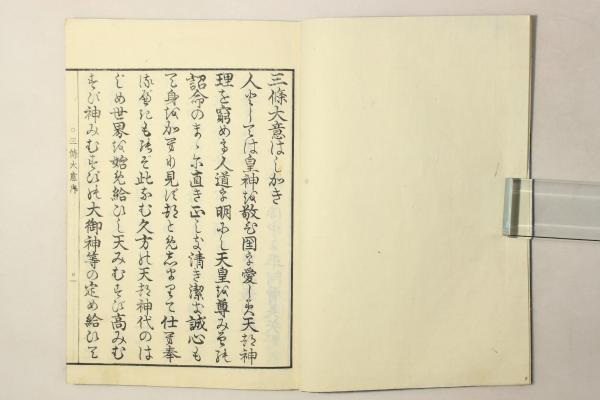 三條大意はしがき
人としては皇神を敬ひ國を愛し天地神
理を窮めて人道を明にし天皇を尊み
詔命のまゝに直き正しき清き潔き誠心も
て身を 仕奉
此なむ久方の天地神代のは
じめ世界を始め給ひし天みむすび高みむ
すび神みむすびの大御神等の定め給ひて
三條大意序
一